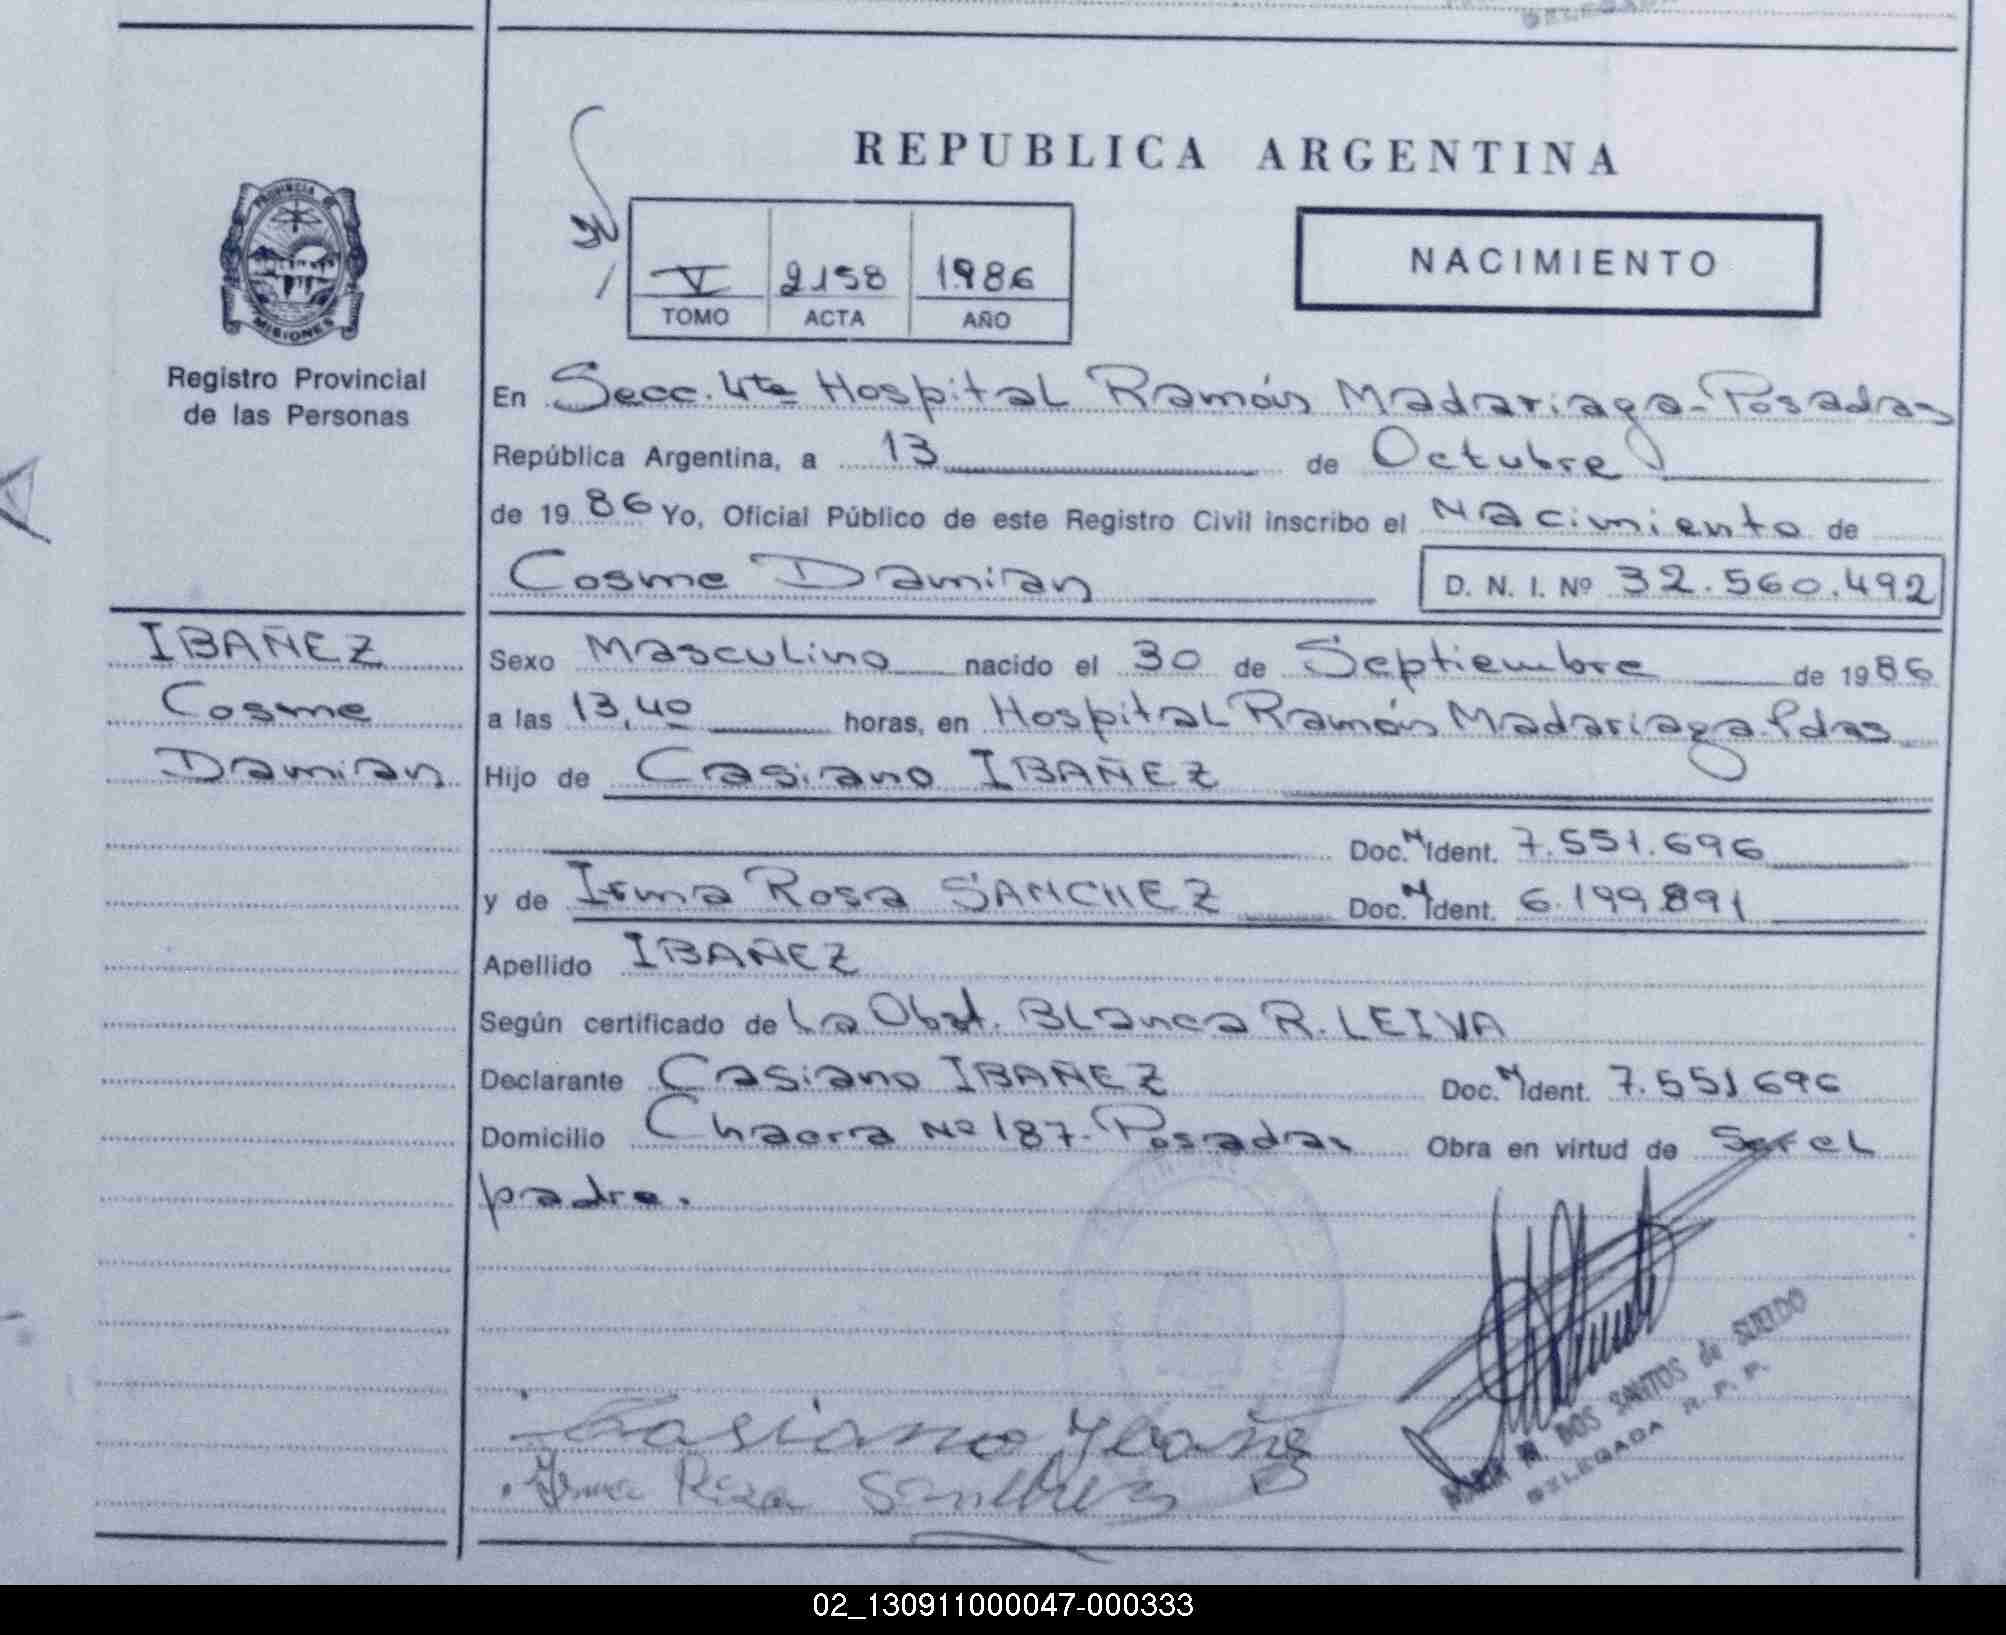 REPUBLICA ARGENTINA
PROVINCIA DE
MISIONES
Registro Provincial
de las Personas
V 2158 1986
TOMO ACTA AÑO
NACIMIENTO
En Secc. 4ta Hospital Ramón Madariaga-Posadas
República Argentina, a 13 de Octubre
de 1986 Yo, Oficial Público de este Registro Civil inscribo el Nacimiento de
Cosme Damian D. N. I. Nº 32.560.492
IBAÑEZ
Cosme
Damian
Sexo Masculino nacido el 30 de Septiembre de 1986
a las 13,40 horas, en Hospital Ramón Madariaga. Pdas
Hijo de Casiano IBAÑEZ
Doc. N Ident. 7.551.696
y de Irma Rosa SANCHEZ Doc. N Ident. 6.199.891
Apellido IBAÑEZ
Según certificado de La Obst. Blanca R. LEIVA
Declarante Casiano IBAÑEZ Doc. N Ident. 7.551.696
Domicilio Chacra Nº 187. Posadas Obra en virtud de Ser el
padre.
Casiano Ybañe
Irma Roza Sanchez
DOS SANTOS de
DELEGADA R. P. P.
02_130911000047-000333